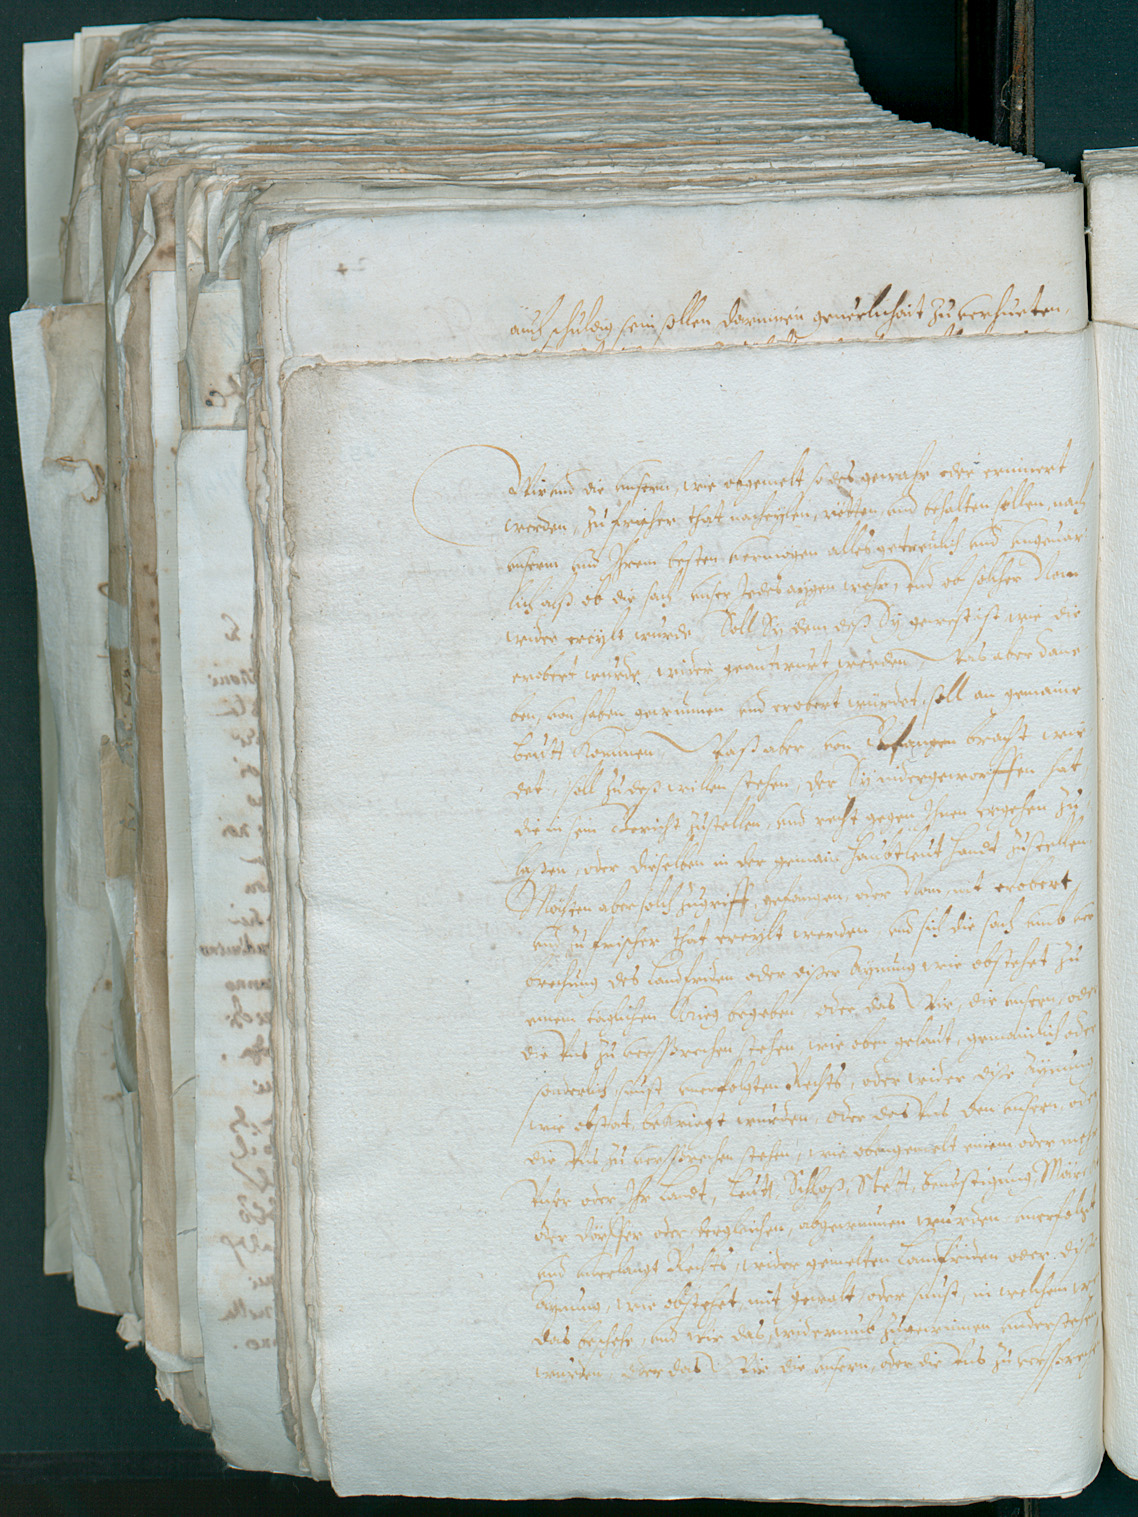 auch schuldig sein sollen darinnen geuerlichait zu verhueten,
Wir und die unsern, wie obgemelt so des gewahr oder erinnert
werden, zu frischer that nacheylen, retten, und behalten sollen, nach
unserm und Jhrem besten vermögen alles getreulich und ungeuar
lich alß ob die sach unser Jedes aygen wehr, und ob solcher Nam
wider ereylt wurde, Soll Sy dem deß Sy gewest ist wie die
erobert wurde, wider geantwurt werden, Was aber dane
ben, von haben gewunnen und erobert würdet, soll an gemaine
beutt kommen, Waß aber von gefangen bracht wür
det, soll zu deß willen stehen, der Sy nidergeworffen hat
die in sein Gericht zustellen, und recht gegen Jhnen ergehen zu
lassen, oder dieselben in der gemain haubtleut handt zustellen
Möchten aber solch zugriff, gefangen, oder Nam, nit erobert,
und zu frischer that ereylt werden und sich die sach umb ver
brechung des landfriden oder diser Aynung wie obstehet zu
einem täglichen Krieg begeben oder das Wir, die unsern, oder
die Uns zu versprechen stehen, wie oben gelaut, gemainlich oder
sonderlich, sunst unerfolgten Rechts, oder wider dise Aynung
wie obstat, bekriegt wurden, oder das Uns den unsern, oder
die Uns zu versprechen stehen, wie obengemelt einem oder mehr
Unser oder Jhr Landt, Leutt, Schloß, Stett, bevestigung, Märckt
oder Dörffer oder dergleichen, abgewunnen wurden unerfolgt
und unerlangt Rechts, wider gemelten Landfriden oder dise
Aynung, wie obstehet, mit gewalt oder sunst, in welchem weg
das beschehe, und wir das widerumb zugewinnen understehen
wurden, Oder das Wir die unsern, oder die Uns zu versprechen